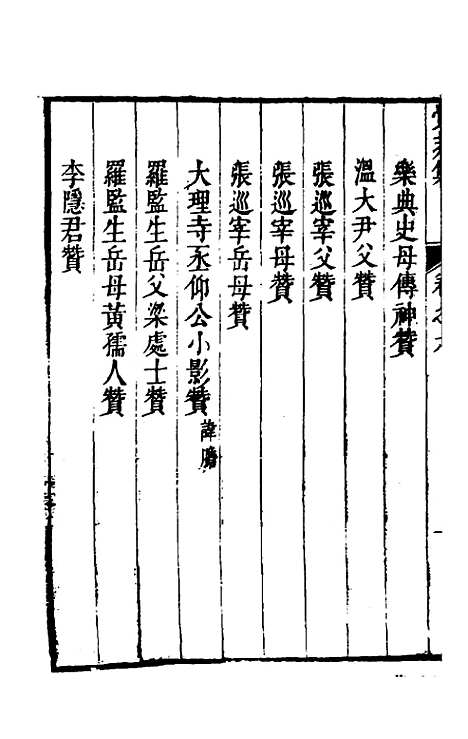 樂典史母傳神贊
溫大尹父贊
張巡宰父贊
張巡宰母贊
張巡宰岳母贊
大理寺丞仰公小影贊 諱瞻
羅監生岳父梁處士贊
羅監生岳母黃孺人贊
李隱君贊